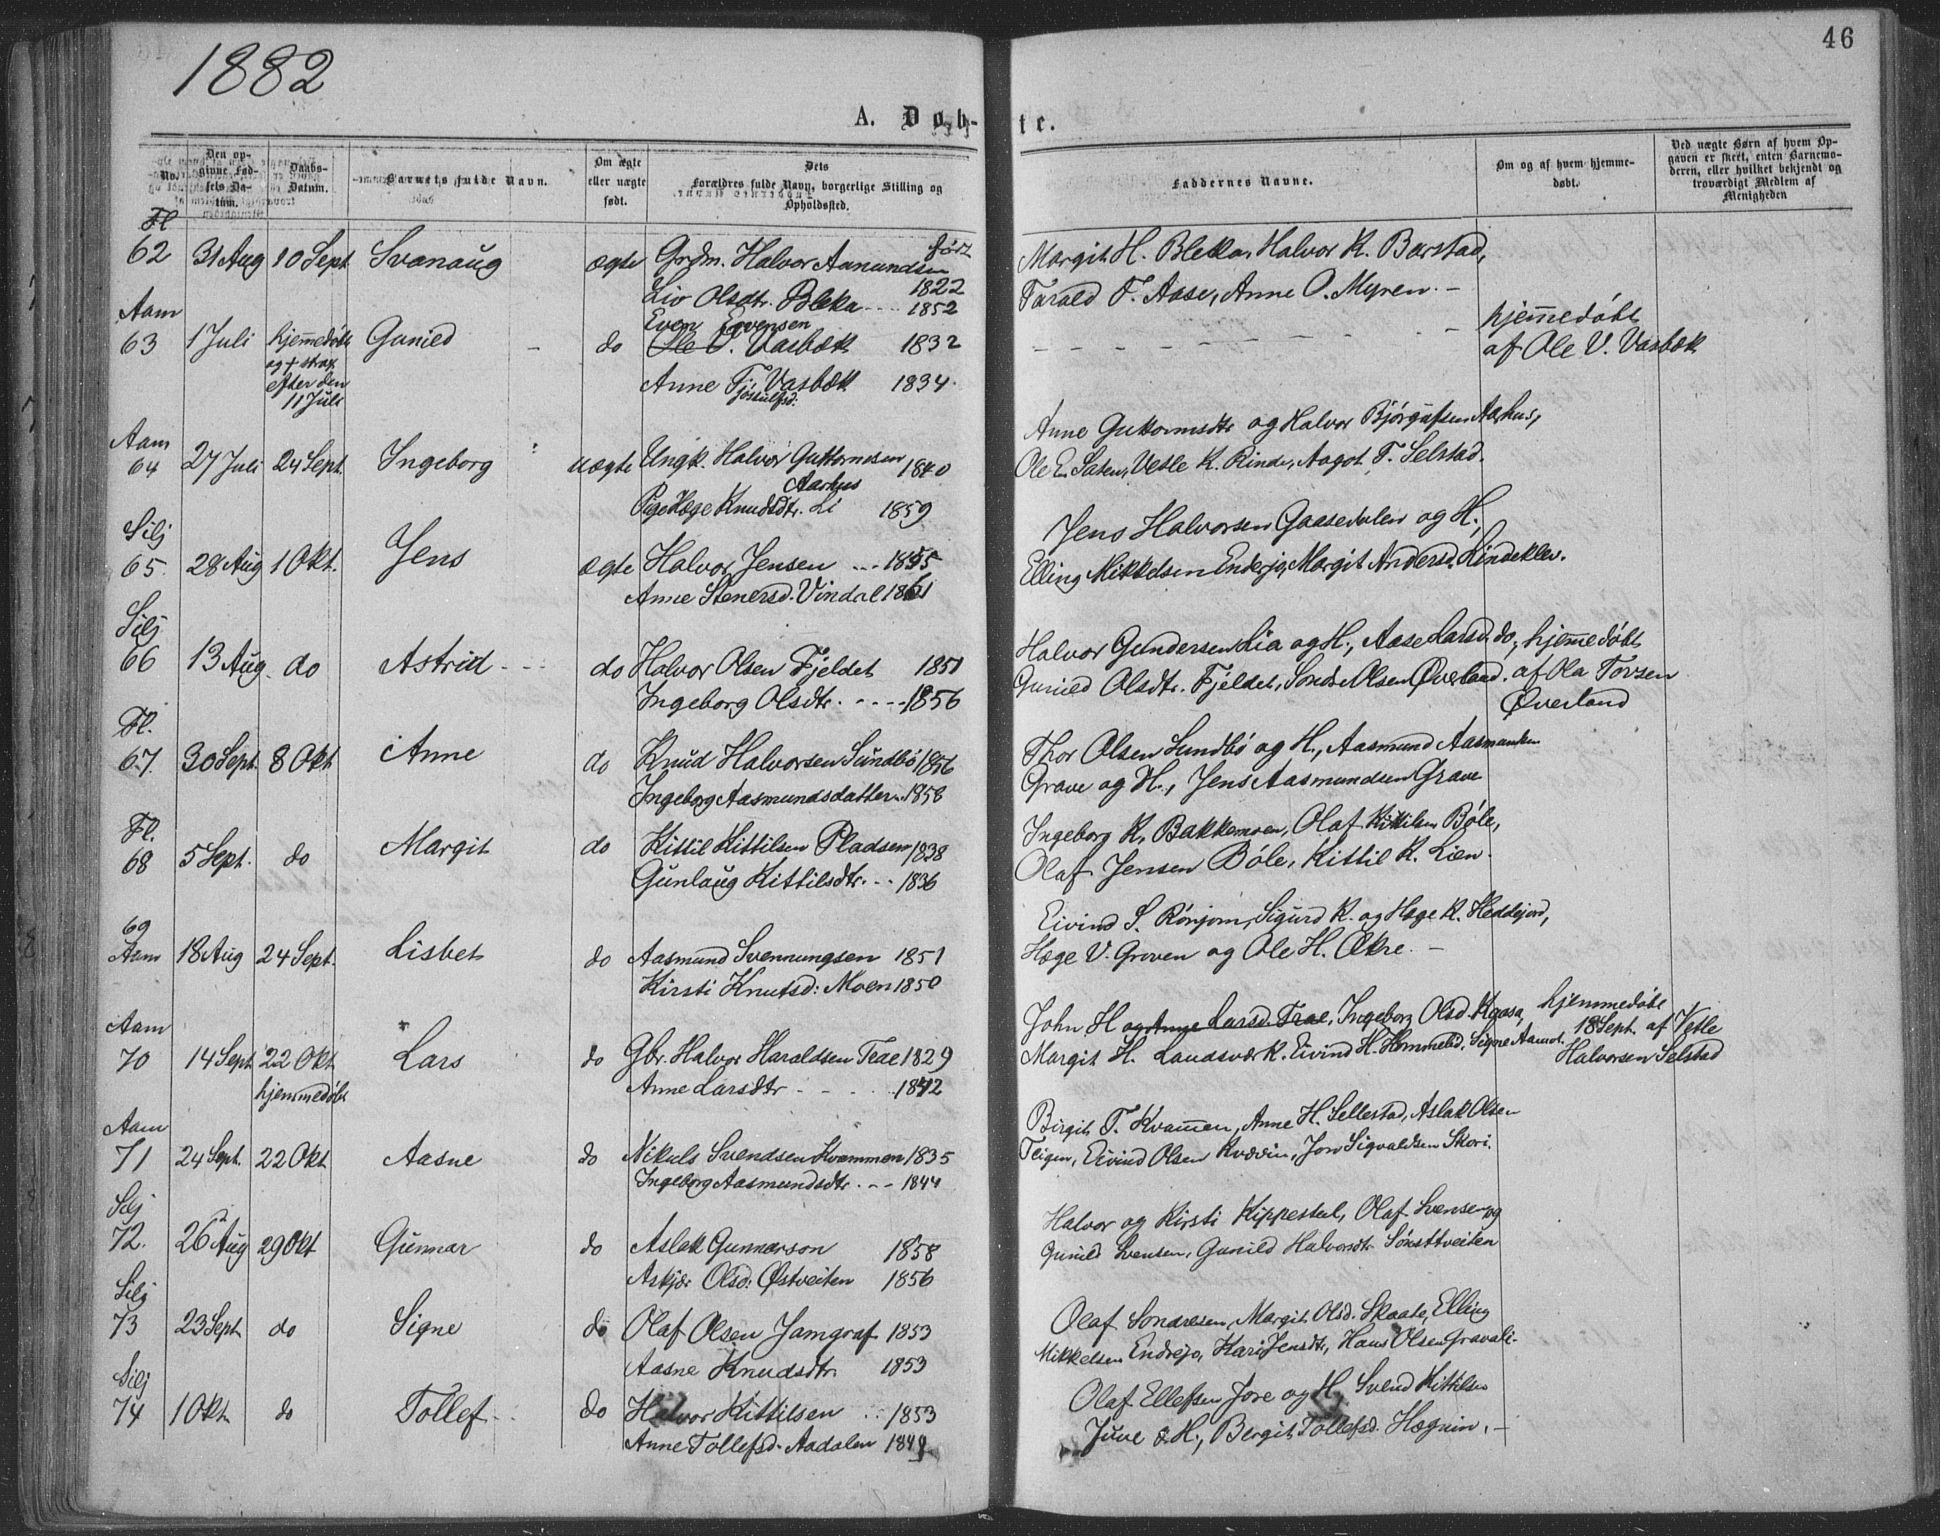 1882
46
A. Døb-
te.
No.
Den op-
givne Fød-
sels Da-
tum.
Daabs-
Datum.
Barnets fulde Navn.
Om ægte
eller uægte
født.
Dets
Forældres fulde Navn, borgerlige Stilling og
Opholdssted.
Faddernes Navne.
Om og af hvem hjemme-
døbt.
Ved uægte Børn af hvem Op-
gaven er skeet, enten Barnemo-
deren, eller hvilket bekjendt og
troværdigt Medlem af
Menigheden
Fl
62 31 Aug 10 Sept Svanaug ægte Grdm. Halvor Aanundsen født 1822
Liv Olsdtr. Bleka 1852
Margit H. Bleka, Halvor K. Barstad,
Tarald T. Aase, Anne O. Myren. –
Aam
63 1 Juli hjemmedøbt Gunild do Ole V. Vasbæk 1832
Even Evensen
og + strax
efter den
11 Juli
Anne Tj. Vasbæk 1834
Jøstulfsd:
hjemmedøbt
af Ole V. Vasbæk
Aam
64 27 Juli 24 Sept. Ingeborg uægte Ungk. Halvor Guttormsen 1840
Aarhus
Pige Hæge Knudsdtr. Li 1859
Anne Guttormsdtr og Halvor Bjørgufsen Aarhus,
Ole E. Saten, Vetle K. Rinde, Aagot T. Selstad.
Silj
65 28 Aug 1 Okt. Jens ægte Halvor Jensen 1855
Anne Stenersd. Vindal 1861
Jens Halvorsen Gaasedalen og H.,
Elling Mikkelsen Enderjo, Margit Andersd. Lindeklev.
Silj
66 13 Aug. do Astrid do Halvor Olsen Fjeldet 1851
Ingeborg Olsdtr. 1856
Halvor Gundersen Lia og H., Aase Larsd. do,
Gunild Olsdtr. Fjeldet, Sondre Olsen Øverland.
hjemmedøbt
af Ola Tovsen
Øverland
Fl.
67. 30 Sept. 8 Okt Anne do Knud Halvorsen Sundbø 1856
Ingeborg Aasmundsdatter 1858
Thor Olsen Sundbø og H., Aasmund Aasmundsen
Grave og H., Jens Aasmundsen Grave
Fl.
68 5 Sept. do Margit do Kittil Kittilsen Pladsen 1838
Gunlaug Kittilsdtr. 1836
Ingeborg K. Bakkemoen, Olaf Kittilsen Bøle,
Olaf Jensen Bøle, Kittil K. Lien.
69
Aam 18 Aug 24 Sept. Lisbet do Aasmund Svennungsen 1851
Kirsti Knutsd: Moen 1850
Eivind S. Rønjom, Sigurd K. og Hæge K. Heddejord,
Hæge V. Groven og Ole H. Økre. –
Aam
70 14 Sept 22 Okt Lars do Gbr. Halvor Haraldsen Trae 1829
hjemmedøbt
Anne Larsdtr 1842
John H og Anne Larsd. Trae, Ingeborg Olsd. Kaasa,
Margit H. Landsværk. Eivind H. Hommelid. Signe Aamot.
hjemmedøbt
18 Sept. af Vetle
Halvorsen Selstad
Aam
71 24 Sept. 22 Okt Aasne do Nikuls Svendsen Kvammen 1835
Ingeborg Aasmundsdtr. 1844
Birgit T. Kvammen, Anne H. Sellestad, Aslak Olsen
Teigen, Eivind Olsen Kvævin, Jon Sigvaldsen Skori.
Silj
72. 26 Aug 29 Okt Gunnar do Aslak Gunnarson 1858
Askjær Olsd: Østveiten 1856
Halvor og Kirsti Kippestul, Olaf Svensen og
Gunild Svensen, Gunild Halvorsdtr
Silj
73 23 Sept do Signe do Olaf Olsen Jamgraf 1853
Aasne Knudsdtr. 1853
Olaf Sondresen, Margit Olsd. Skaate, Elling
Mikkelsen Endrejo, Kari Jensdtr, Hans Olsen Gravali.
Silj
74 1 Okt do Tollef do Halvor Kittilsen 1853
Anne Tollefsd. Aadalen 1849
Olaf Ellefsen Jore og H. Svend Kittilsen
Juve & H., Bergit Tollefsd. Hægnin. –